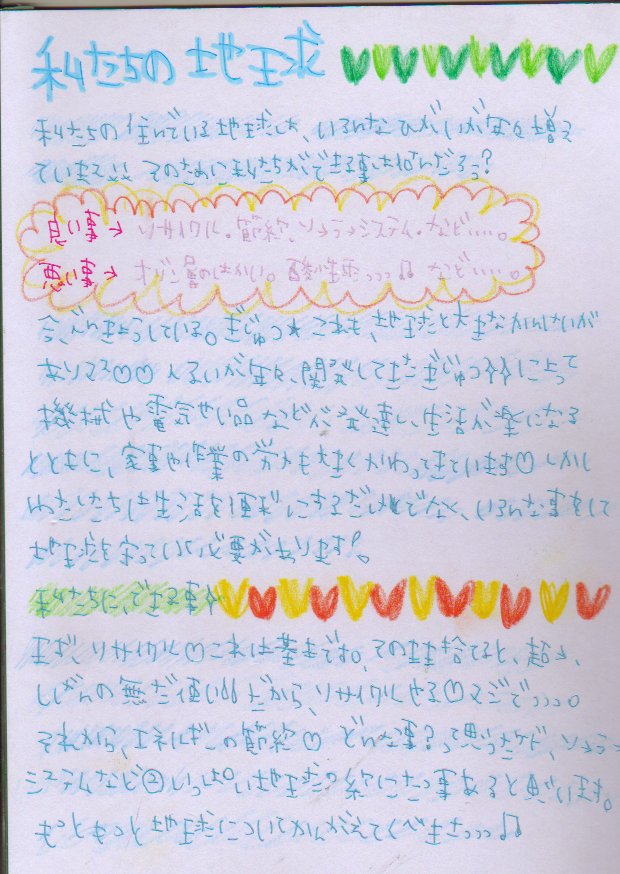 私たちの地球
私たちの住んでいる地球は今、いろんなひがいが年々増え
ています。そのために私たちができる事は何だろっ？
良い事→ リサイクル。節約、ソーラーシステム。など….。
悪い事→ オゾン層のはかい。酸性雨っっっ など….。
今、べんきょうしている。ぎじゅつ★これも、地球と大きなかんけいが
ありマス♡♡ 人るいが年々、開発してきたぎじゅつによって
機械や電気せい品などが発達し、生活が楽になる
とともに、家事や作業の労力も大きくかわってきています♡しかし
わたしたちは生活を便利にするだけでなく、いろんな事をして
地球を守っていく必要があります!。
私たちに、できる事
まず、リサイクル♡これは基本です。そのまま捨てると、超、
しげんの無だ使い だから、リサイクルやる♡マジでっっっ。
それから、エネルギーの節約♡ どんな事？って思ったケド、ソーラー
システムなど いっぱい地球の役にたつ事あると思います。
もっともっと地球についてかんがえてくべきっっっ♫